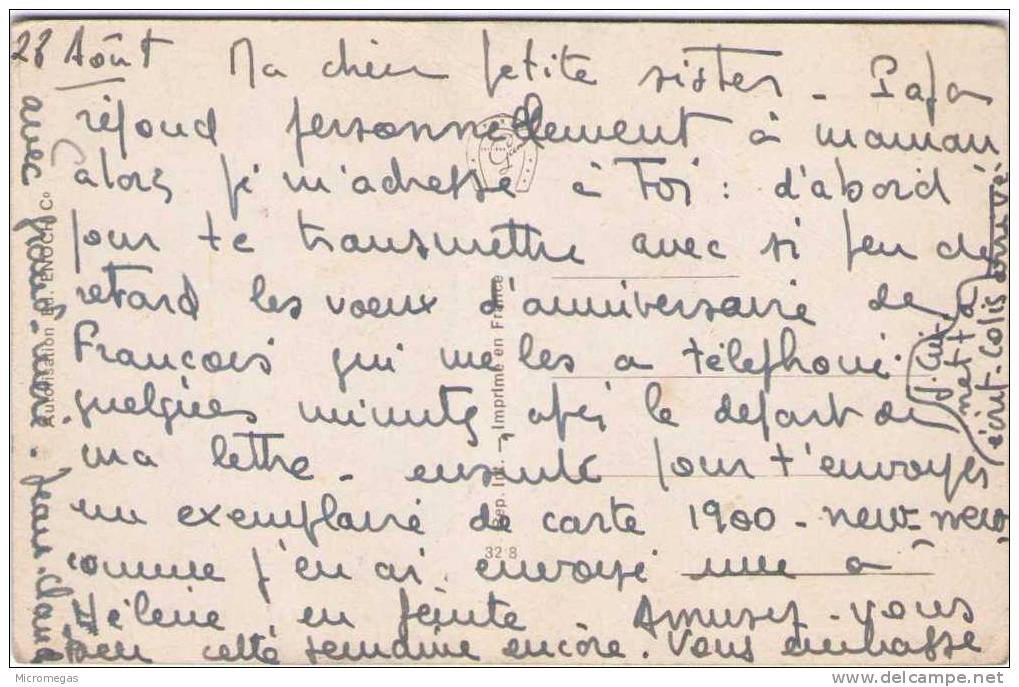 28 Août Ma chère petite sister. Papa
répond personnellement à maman
alors je m'adresse à Toi : d'abord
pour te transmettre avec si peu de
retard les voeux d'anniversaire de
François qui me les a téléphoné
quelques minutes après le départ de
ma lettre. ensuite pour t'envoyer
un exemplaire de carte 1900 - new-new
comme j'en ai envoyé une à
Hélène en feinte Amusez-vous
bien cette semaine encore. Vous embrasse
avec
Jean-Claude
écrit. Colis arrivé
Autorisation ENOCH Co
Imprimé en France
32 8
Micromegas
delcampe.net